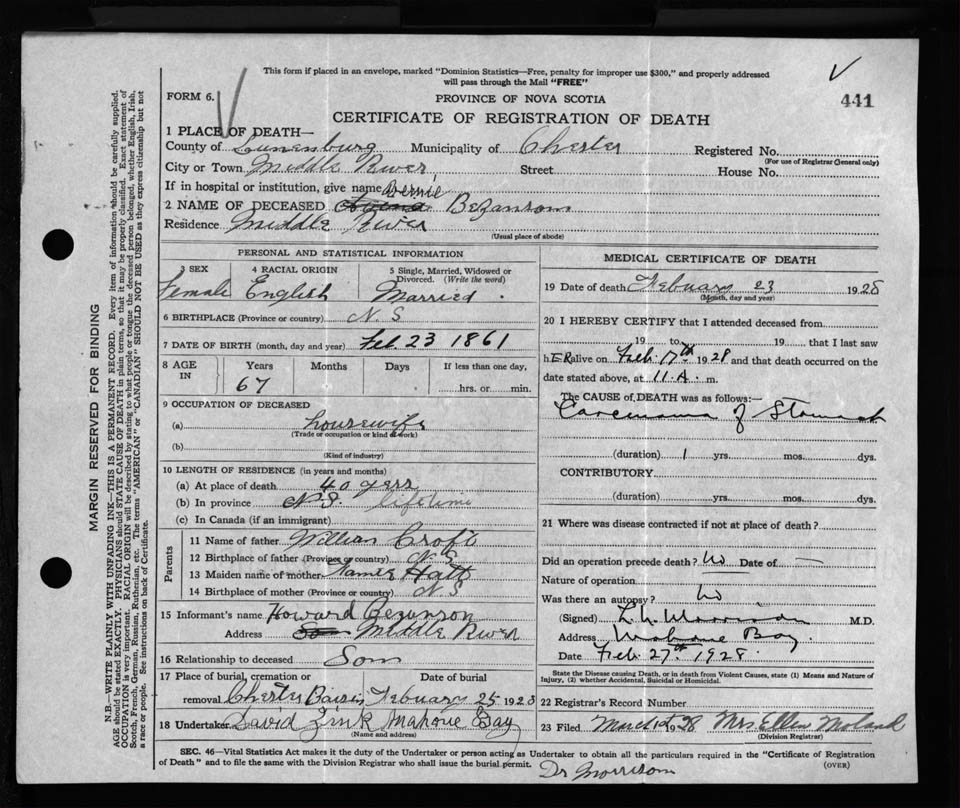 This form if placed in an envelope, marked "Dominion Statistics—Free, penalty for improper use $300," and properly addressed
will pass through the Mail "FREE"
FORM 6.
PROVINCE OF NOVA SCOTIA
441
CERTIFICATE OF REGISTRATION OF DEATH
1 PLACE OF DEATH—
County of Lunenburg Municipality of Chester Registered No.
(For use of Registrar General only)
City or Town Middle River, Street House No.
If in hospital or institution, give name
2 NAME OF DECEASED Bernie Bezanson
Residence Middle River
(Usual place of abode)
PERSONAL AND STATISTICAL INFORMATION
3 SEX
Female
4 RACIAL ORIGIN
English
5 Single, Married, Widowed or
Divorced. (Write the word)
Married.
6 BIRTHPLACE (Province or country) N.S
7 DATE OF BIRTH (month, day and year) Feb. 23 1861
8 AGE IN Years Months Days If less than one day,
67 hrs. or min.
9 OCCUPATION OF DECEASED
(a) housewife
(Trade or occupation or kind of work)
(b)
(Kind of industry)
10 LENGTH OF RESIDENCE (in years and months)
(a) At place of death 40 years
(b) In province N.S. lifetime
(c) In Canada (if an immigrant)
Parents
11 Name of father William Croft
12 Birthplace of father (Province or country) N.S
13 Maiden name of mother Hatt
14 Birthplace of mother (Province or country) N.S
15 Informant's name Howard Bezanson
Address Middle River
16 Relationship to deceased Son
17 Place of burial, cremation or Date of burial
removal Chester Basin February 25 1928
18 Undertaker David Zink Mahone Bay
(Name and address)
MEDICAL CERTIFICATE OF DEATH
19 Date of death Febuary 23 1928
(Month, day and year)
20 I HEREBY CERTIFY that I attended deceased from
19 to 19 that I last saw
hER alive on Feb 17th 1928 and that death occurred on the
date stated above, at 11 A. m.
The CAUSE of DEATH was as follows:—
Carcinoma of Stomach
(duration) 1 yrs. mos. dys.
CONTRIBUTORY.
(duration) yrs. mos. dys.
21 Where was disease contracted if not at place of death?
Did an operation precede death? No Date of —
Nature of operation
Was there an autopsy? No
(Signed) Morrison M.D.
Address Mahone Bay.
Date Feb. 27th 1928.
State the Disease causing Death, or in Death from Violent Causes, state (1) Means and Nature of
Injury, (2) whether Accidental, Suicidal or Homicidal.
22 Registrar's Record Number
23 Filed March 1928 Mrs Ellen
(Division Registrar)
SEC. 46—Vital Statistics Act makes it the duty of the Undertaker or person acting as Undertaker to obtain all the particulars required in the "Certificate of Registration
of Death" and to file the same with the Division Registrar who shall issue the burial permit.
(OVER)
Dr Morrison
MARGIN RESERVED FOR BINDING
N.B.—WRITE PLAINLY WITH UNFADING INK—THIS IS A PERMANENT RECORD. Every item of information should be carefully supplied.
AGE should be stated EXACTLY. PHYSICIANS should STATE CAUSE OF DEATH in plain terms, so that it may be properly classified. Exact statement of
OCCUPATION is very important. RACIAL ORIGIN will be described by stating to what people or tongue the deceased person belonged, whether English, Irish,
Scotch, French, German, Russian, Ruthenian, etc. The terms "AMERICAN" or "CANADIAN" SHOULD NOT BE USED as they express citizenship but not
a race or people. See instructions on back of Certificate.